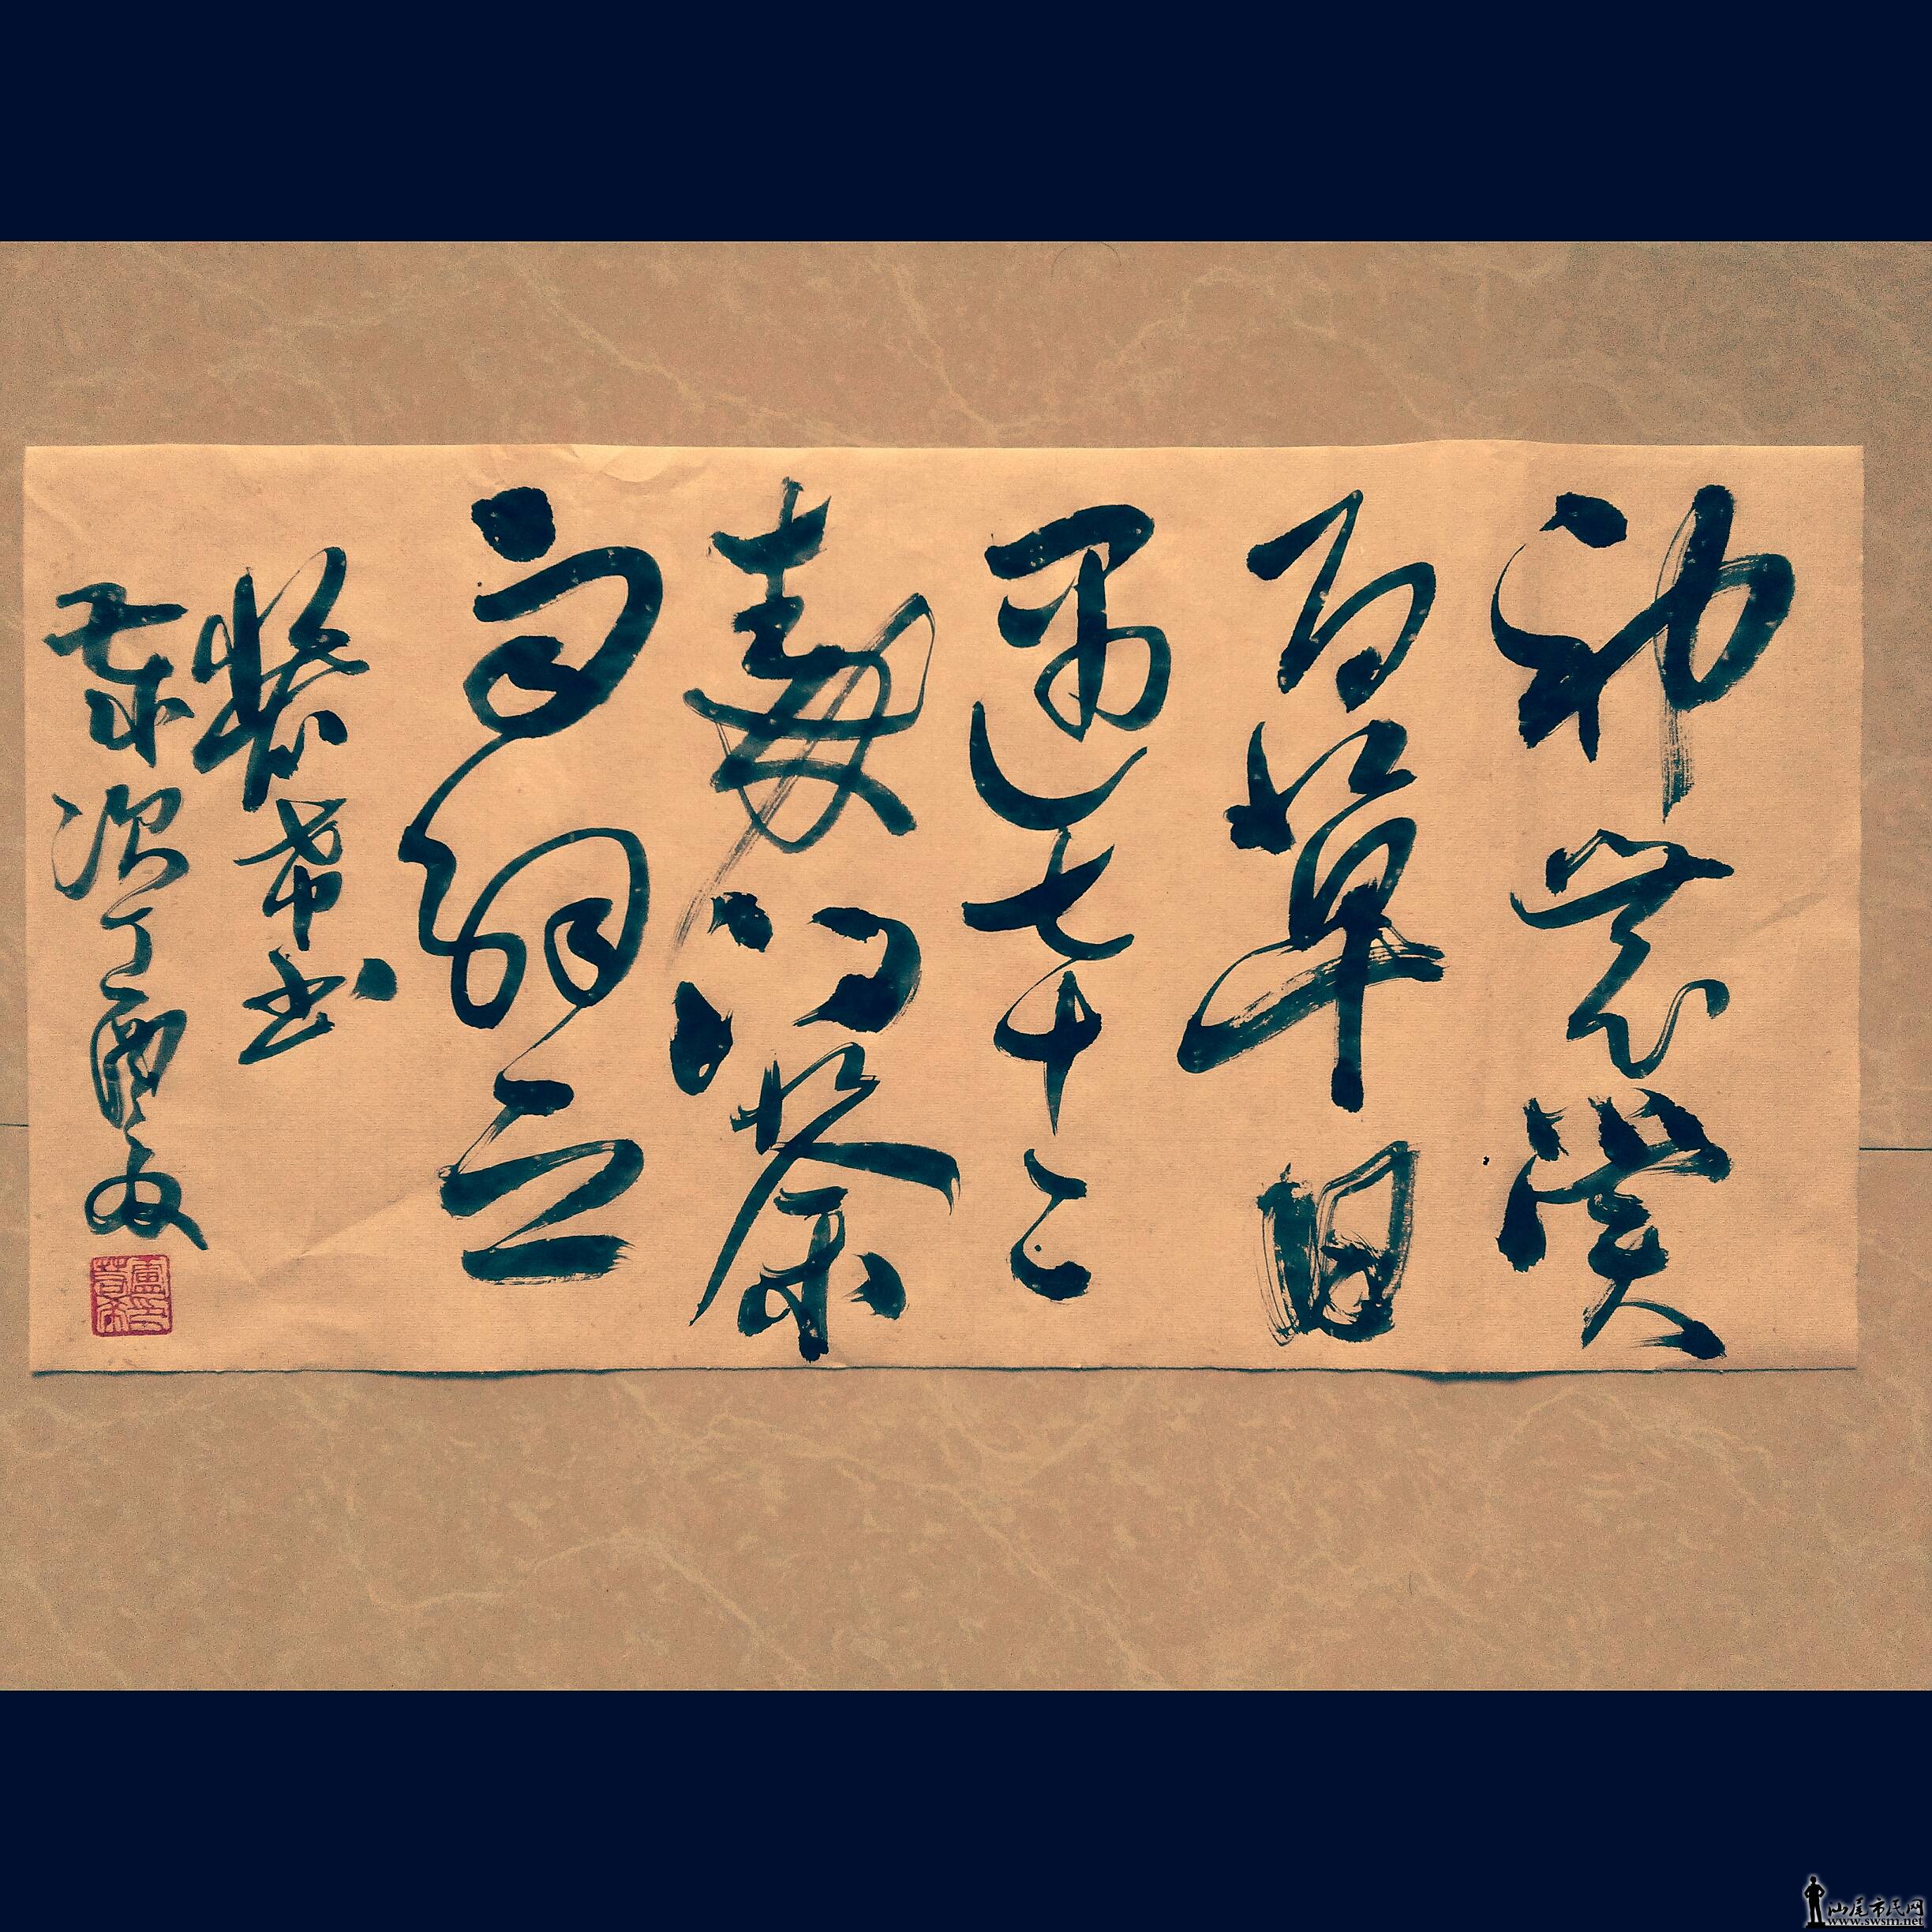 神農嘗
百草日
遇七十二
毒得茶
而解之
希书
歲次丁酉夏
汕尾市民网
www.swsm.net